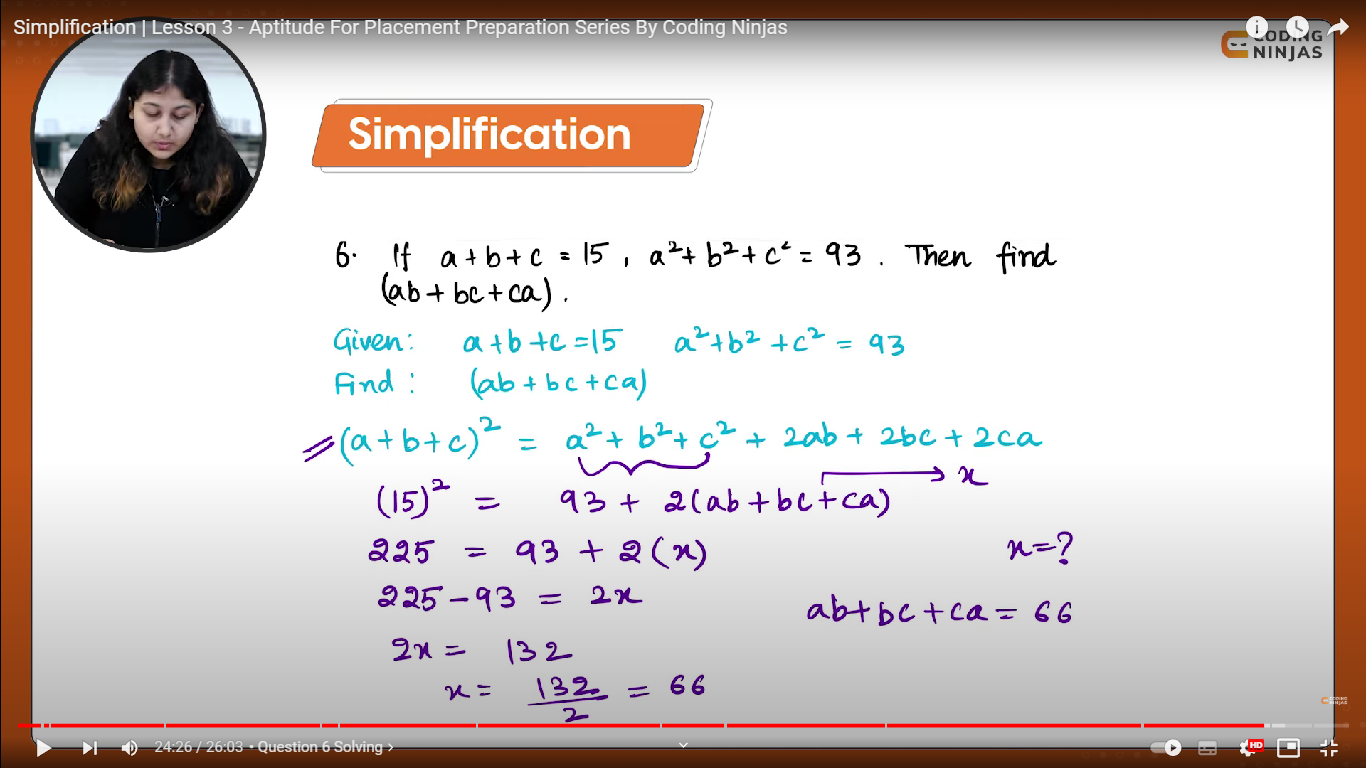 Simplification | Lesson 3 - Aptitude For Placement Preparation Series By Coding Ninjas
CODING
NINJAS
Simplification
6. If a+b+c = 15, a²+b²+c² = 93. Then find
(ab+bc+ca).
Given: a+b+c=15 a²+b²+c² = 93
Find: (ab+bc+ca)
(a+b+c)² = a²+b²+c²+2ab+2bc+2ca
x
(15)² = 93+2(ab+bc+ca)
225 = 93+2(x)
x=?
225-93 = 2x
ab+bc+ca= 66
2x = 132
x = 132/2 = 66
CODING
NINJAS
24:26 / 26:03 • Question 6 Solving >
HD